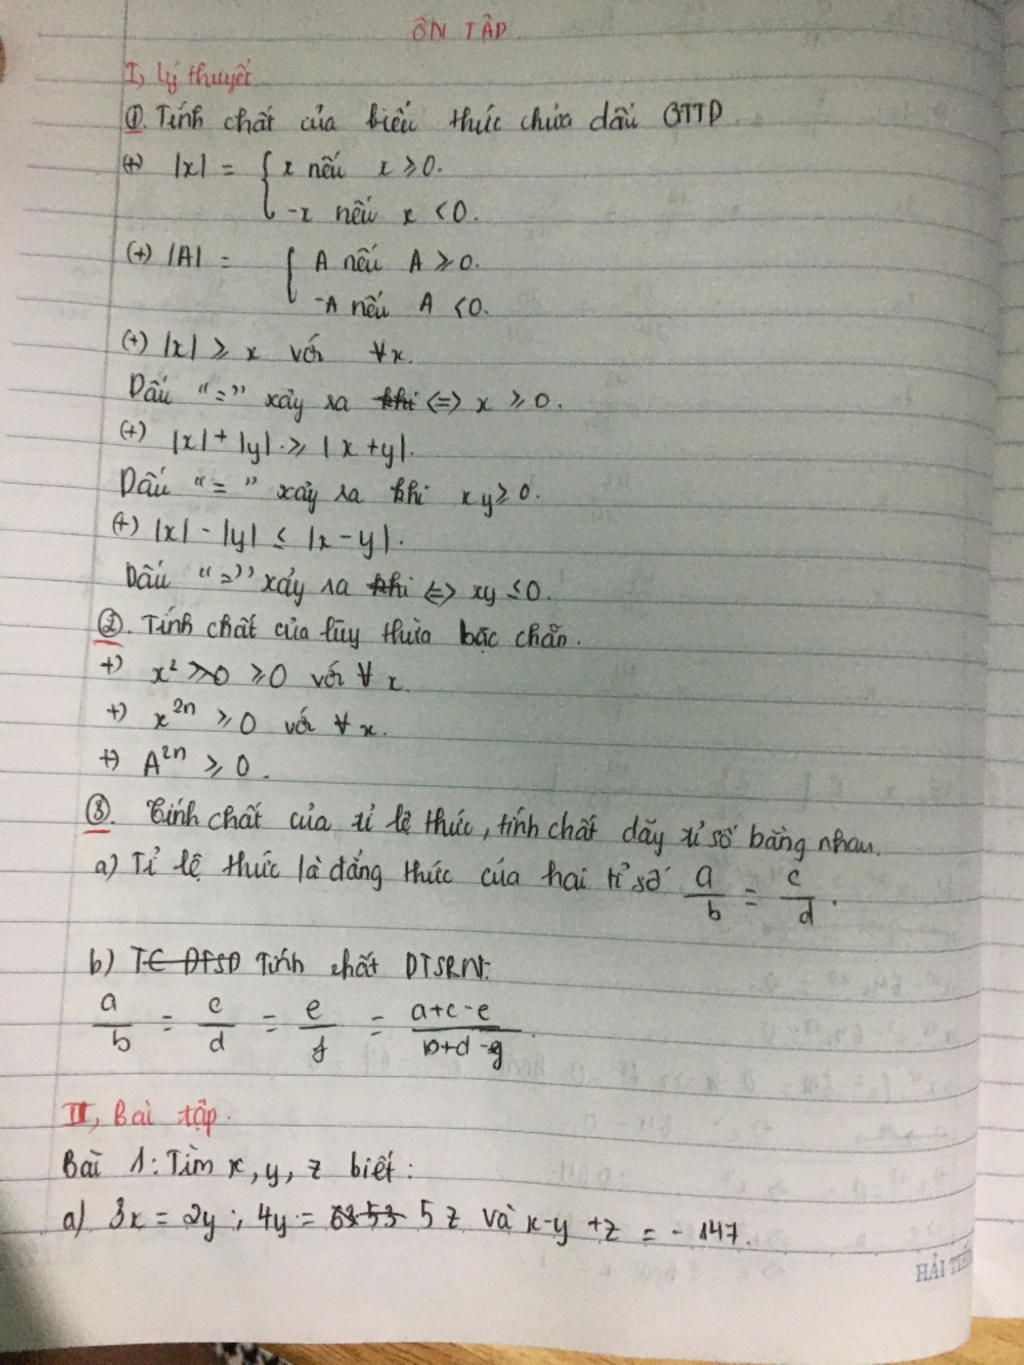 ÔN TẬP.
I, Lý thuyết
①. Tính chất của biểu thức chứa dấu GTTĐ.
(+) |x| = { x nếu x ≥ 0.
-x nếu x < 0.
(+) |A| = { A nếu A ≥ 0.
-A nếu A < 0.
(+) |x| ≥ x với ∀x.
Dấu "=" xảy ra khi <=> x ≥ 0.
(+) |x| + |y| ≥ |x+y|.
Dấu "=" xảy ra khi xy ≥ 0.
(+) |x| - |y| ≤ |x-y|.
Dấu "=" xảy ra khi <=> xy ≤ 0.
②. Tính chất của lũy thừa bậc chẵn.
+) x² ≥ 0 ≥ 0 với ∀ x.
+) x²ⁿ ≥ 0 với ∀ x.
+) A²ⁿ ≥ 0.
③. Tính chất của tỉ lệ thức, tính chất dãy tỉ số bằng nhau.
a) Tỉ lệ thức là đẳng thức của hai tỉ số a/b = c/d.
b) TC DTSD Tính chất DTSBN:
a/b = c/d = e/f = a+c-e/b+d-g.
II, Bài tập.
Bài 1: Tìm x, y, z biết:
a) 3x = 2y; 4y = 5z và x-y+z = -147.
HẢI TIẾN